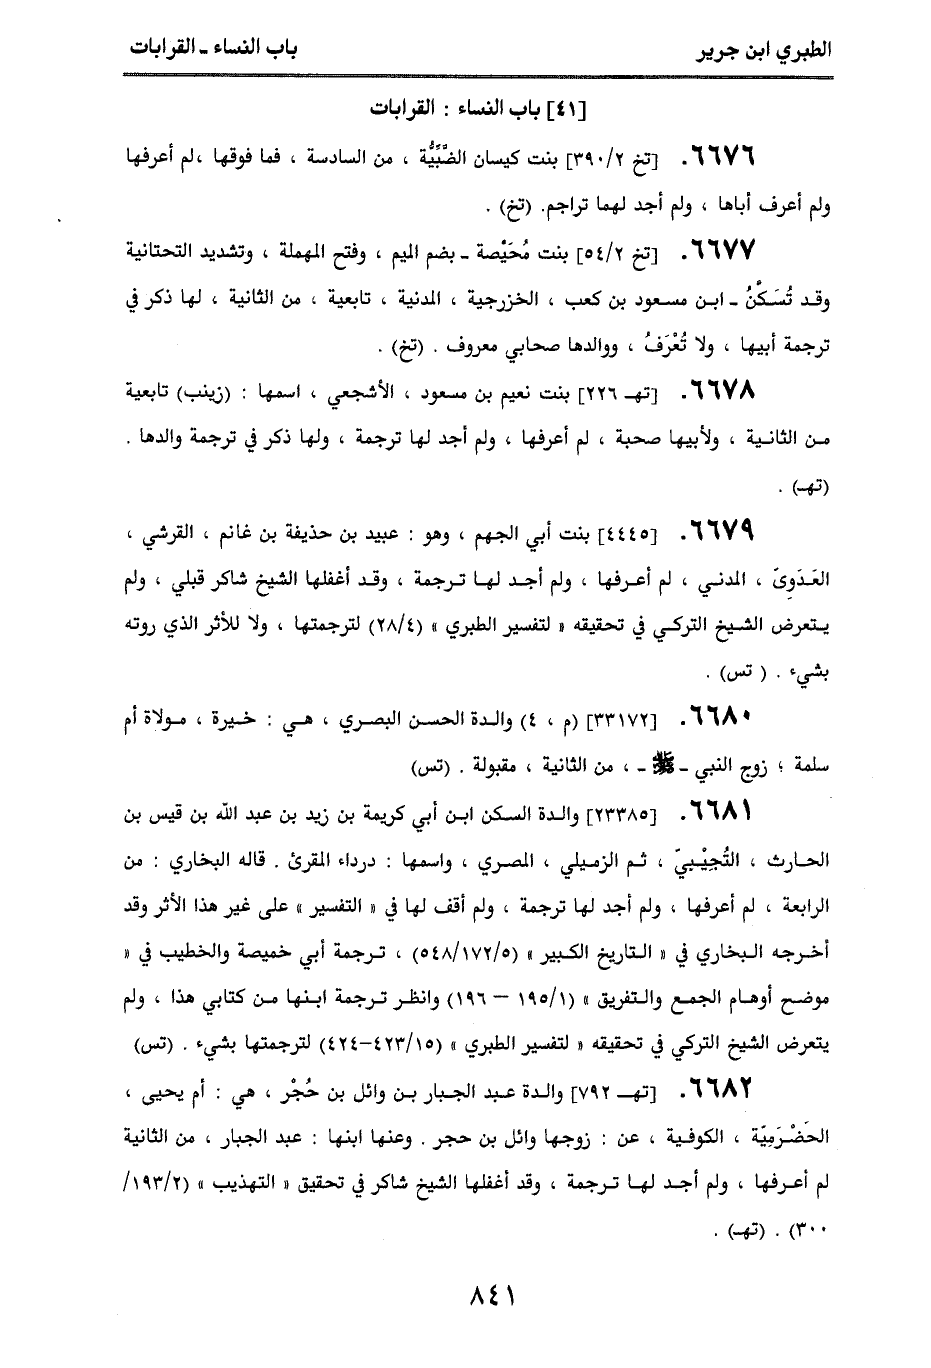 الطبري ابن جرير
باب النساء ـ القرابات
[٤١] باب النساء : القرابات
٦٦٧٦. [تخ ٣٩٠/٢] بنت كيسان الضَّبِّيَّة ، من السادسة ، فما فوقها ،لم أعرفها
ولم أعرف أباها ، ولم أجد لهما تراجم. (تخ) .
٦٦٧٧. [تخ ٥٤/٢] بنت مُحَيْصة ـ بضم الميم ، وفتح المهملة ، وتشديد التحتانية
وقد تُسَكَّنُ ـ ابن مسعود بن كعب ، الخزرجية ، المدنية ، تابعية ، من الثانية ، لها ذكر في
ترجمة أبيها ، ولا تُعْرَفُ ، ووالدها صحابي معروف . (تخ) .
٦٦٧٨. [تهـ ٢٢٦] بنت نعيم بن مسعود ، الأشجعي ، اسمها : (زينب) تابعية
من الثانية ، ولأبيها صحبة ، لم أعرفها ، ولم أجد لها ترجمة ، ولها ذكر في ترجمة والدها .
(تهـ) .
٦٦٧٩. [٤٤٤٥] بنت أبي الجهم ، وهو : عبيد بن حذيفة بن غانم ، القرشي ،
العَدَوِيّ ، المدني ، لم أعرفها ، ولم أجد لها ترجمة ، وقد أغفلها الشيخ شاكر قبلي ، ولم
يتعرض الشيخ التركي في تحقيقه « لتفسير الطبري » (٢٨/٤) لترجمتها ، ولا للأثر الذي روته
بشيء . ( تس) .
٦٦٨٠. [٣٣١٧٢] (م ، ٤) والدة الحسن البصري ، هي : خيرة ، مولاة أم
سلمة ؛ زوج النبي ـ ﷺ ـ ، من الثانية ، مقبولة . (تس)
٦٦٨١. [٢٣٣٨٥] والدة السكن ابن أبي كريمة بن زيد بن عبد الله بن قيس بن
الحارث ، التُّجِيْبيّ ، ثم الزميلي ، المصري ، واسمها : درداء المقرئ . قاله البخاري : من
الرابعة ، لم أعرفها ، ولم أجد لها ترجمة ، ولم أقف لها في « التفسير » على غير هذا الأثر وقد
أخرجه البخاري في « التاريخ الكبير » (٥٤٨/١٧٢/٥) ، ترجمة أبي خميصة والخطيب في «
موضح أوهام الجمع والتفريق » (١٩٥/١ – ١٩٦) وانظر ترجمة ابنها من كتابي هذا ، ولم
يتعرض الشيخ التركي في تحقيقه « لتفسير الطبري » (٤٢٣/١٥–٤٢٤) لترجمتها بشيء . (تس)
٦٦٨٢. [تهـ ٧٩٢] والدة عبد الجبار بن وائل بن حُجْر ، هي : أم يحيى ،
الحَضْرَمِيّة ، الكوفية ، عن : زوجها وائل بن حجر . وعنها ابنها : عبد الجبار ، من الثانية
لم أعرفها ، ولم أجد لها ترجمة ، وقد أغفلها الشيخ شاكر في تحقيق « التهذيب » (١٩٣/٢/
٣٠٠) . (تهـ) .
٨٤١